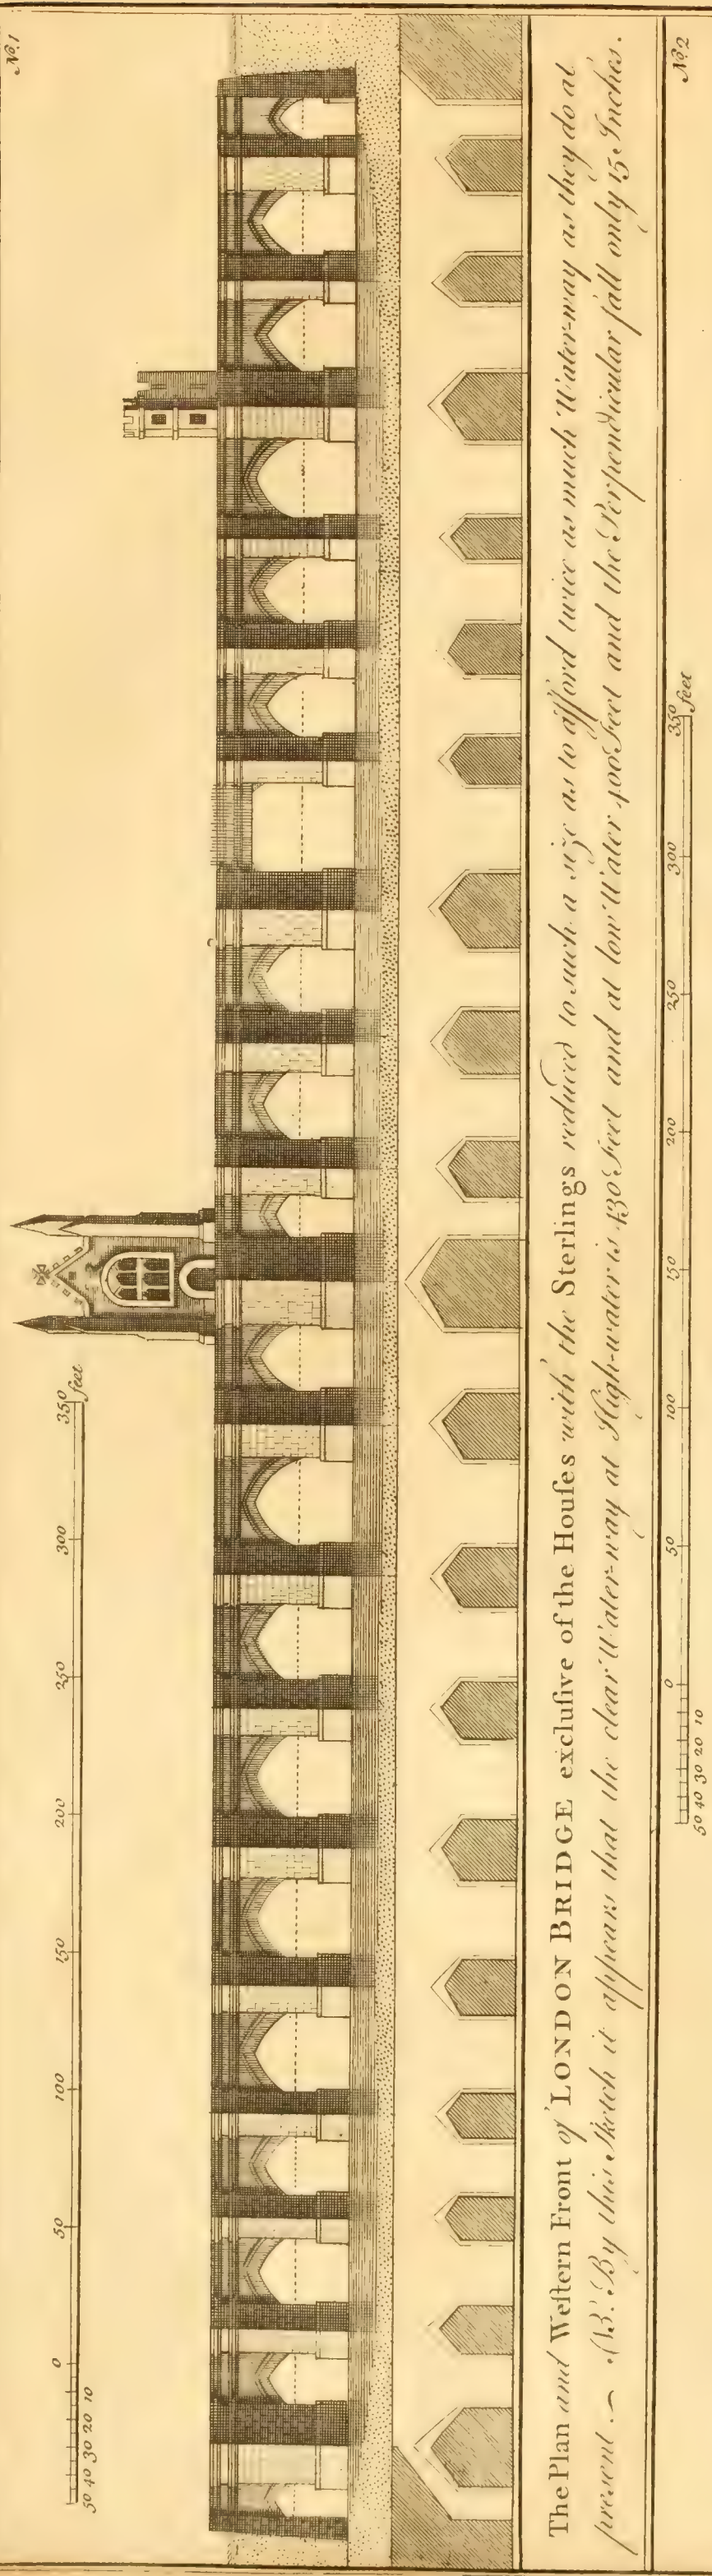 No. 1
50 40 30 20 10 0 50 100 150 200 250 300 350 feet
The Plan and Weſtern Front of LONDON BRIDGE excluſive of the Houſes with the Sterlings reduced to such a size as to afford twice as much Water-way as they do at
present. ~ N.B. By this Sketch it appears that the clear Water-way at High-water is 430 Feet and at low Water 400 Feet and the Perpendicular fall only 15 Inches.
50 40 30 20 10 0 50 100 150 200 250 300 350 feet
No. 2